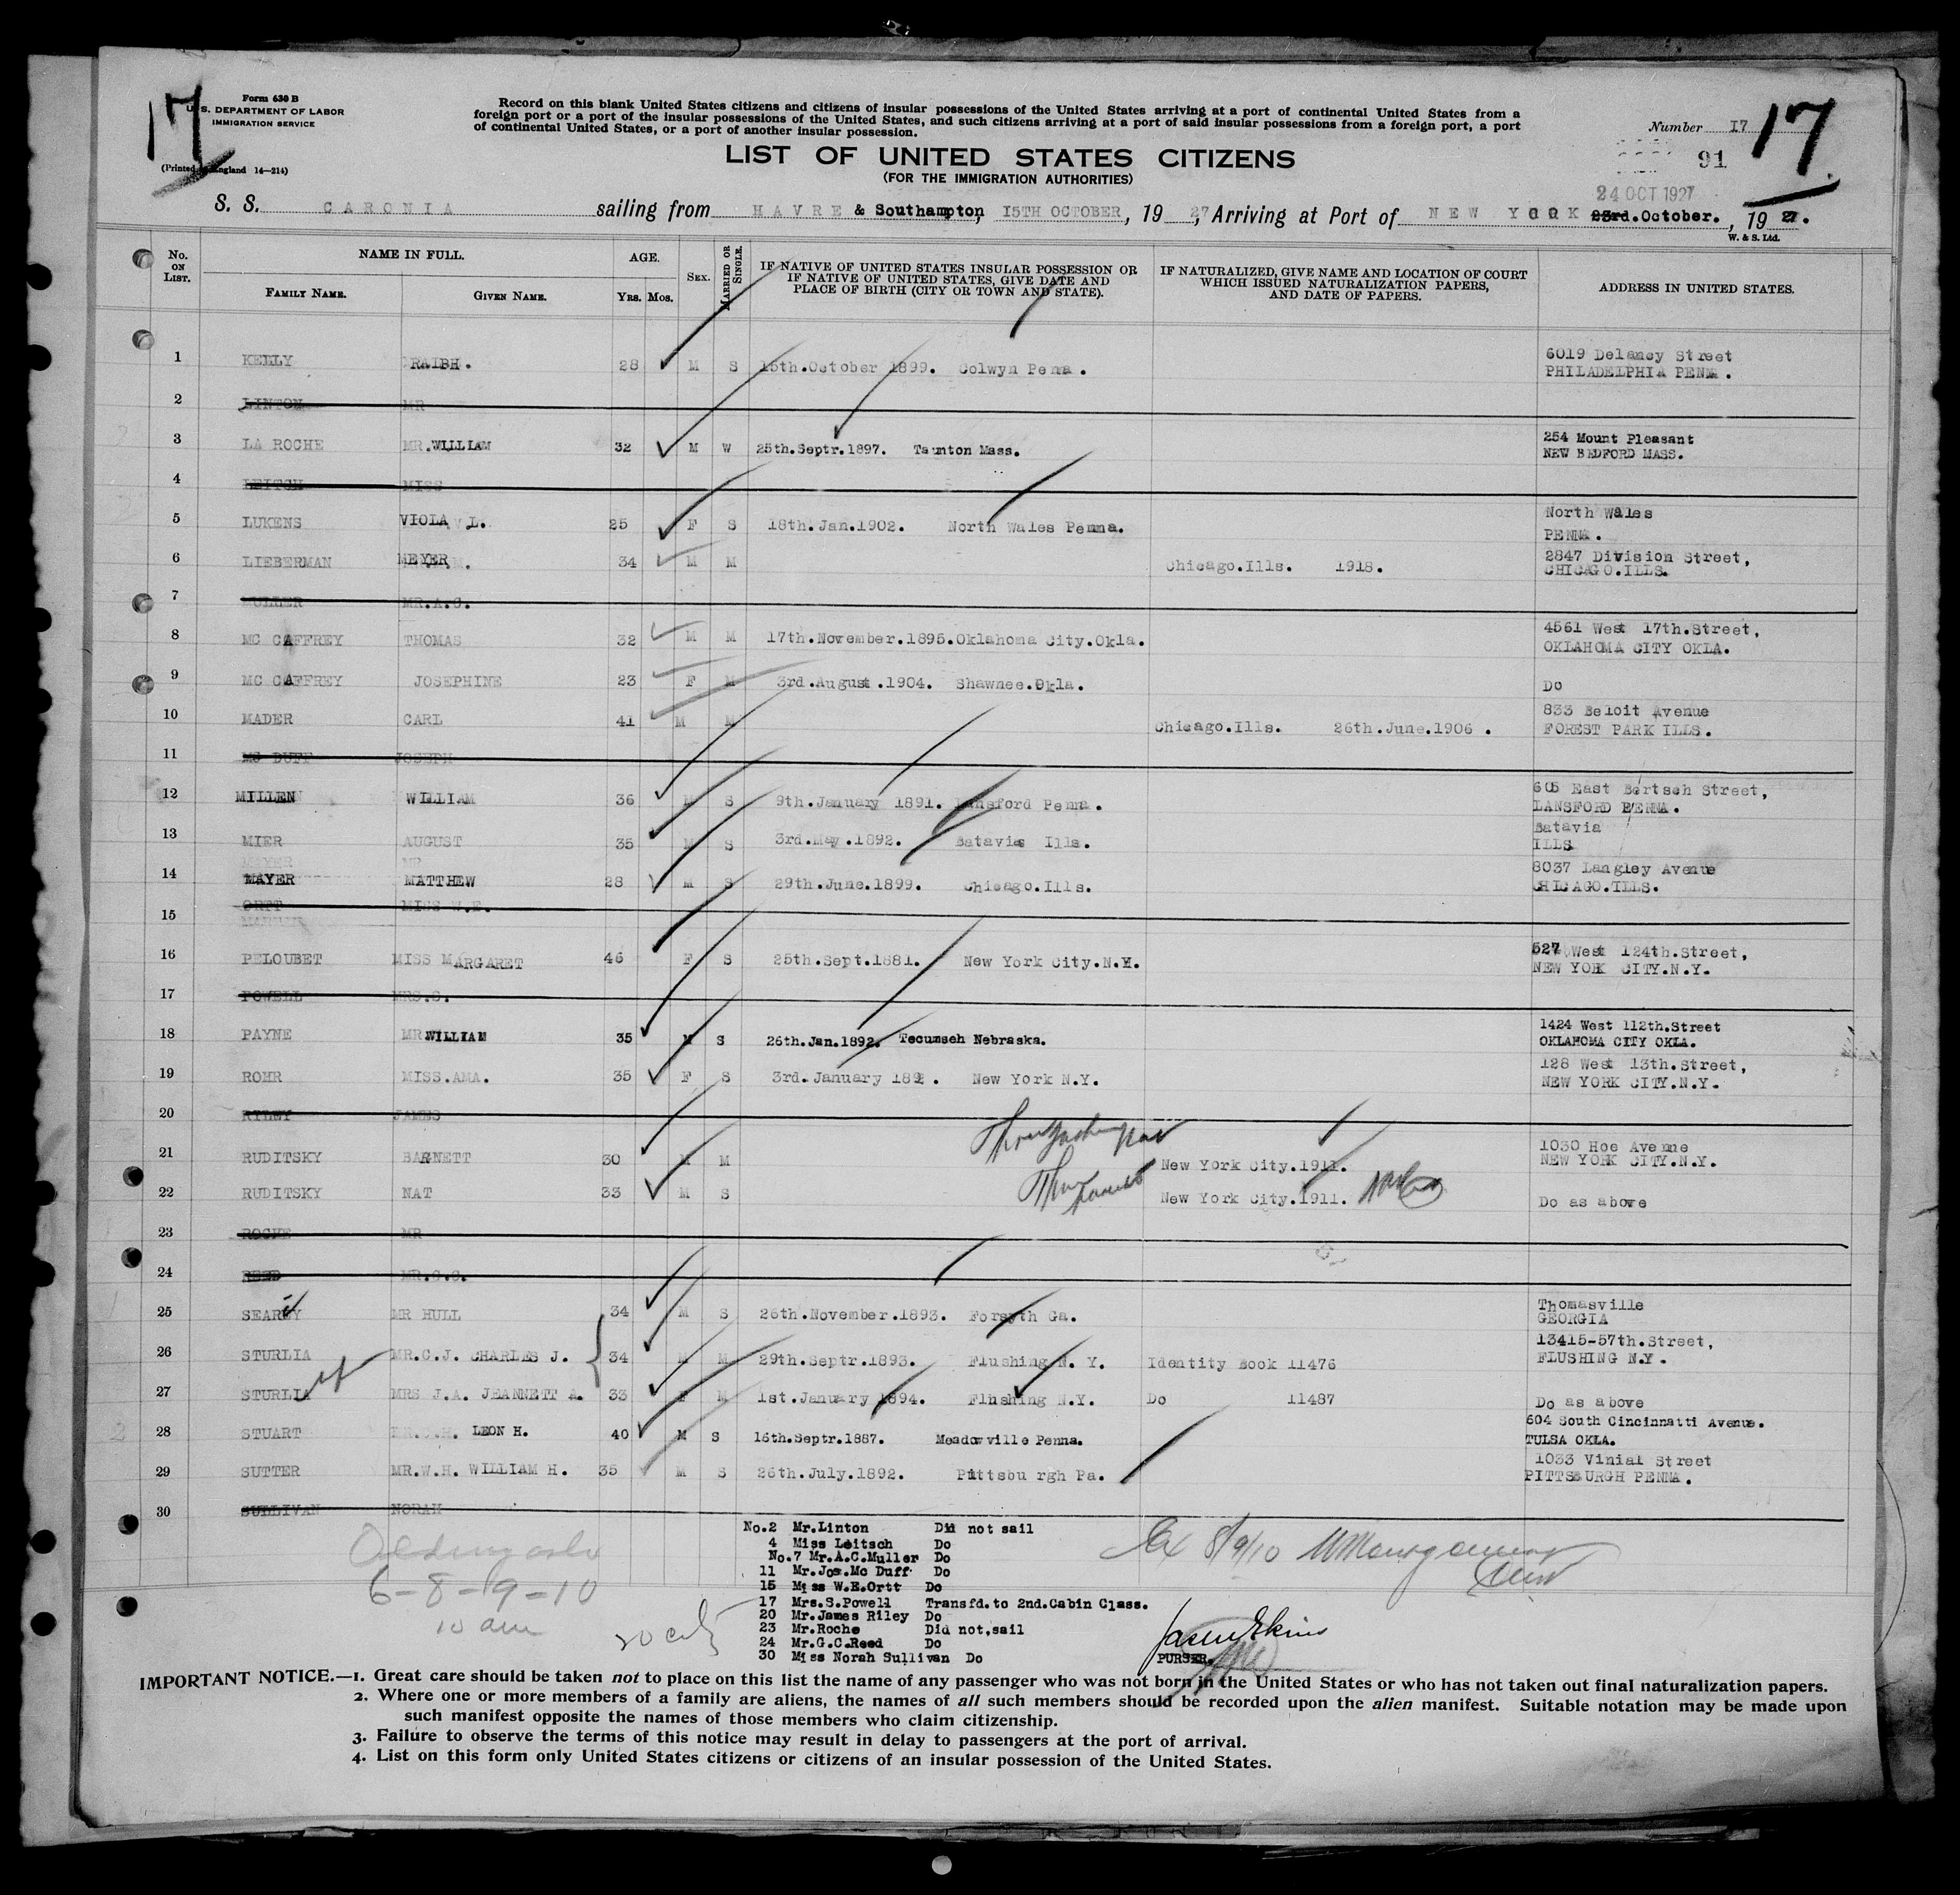 17
Form 630 B
U. S. DEPARTMENT OF LABOR
IMMIGRATION SERVICE
(Printed England 14—214)
Record on this blank United States citizens and citizens of insular possessions of the United States arriving at a port of continental United States from a
foreign port or a port of the insular possessions of the United States, and such citizens arriving at a port of said insular possessions from a foreign port, a port
of continental United States, or a port of another insular possession.
Number 17
17
91
LIST OF UNITED STATES CITIZENS
(FOR THE IMMIGRATION AUTHORITIES)
24 OCT 1927
S. S. CARONIA sailing from HAVRE & Southampton, 15TH OCTOBER, 1927, Arriving at Port of NEW YORK 23rd.October. , 1927.
W. & S. Ltd.
No. ON LIST. NAME IN FULL. FAMILY NAME. GIVEN NAME. AGE. Yrs. Mos. SEX. MARRIED OR SINGLE. IF NATIVE OF UNITED STATES INSULAR POSSESSION OR IF NATIVE OF UNITED STATES, GIVE DATE AND PLACE OF BIRTH (CITY OR TOWN AND STATE). IF NATURALIZED, GIVE NAME AND LOCATION OF COURT WHICH ISSUED NATURALIZATION PAPERS, AND DATE OF PAPERS. ADDRESS IN UNITED STATES.
1 KEELY RALBH. 28 M S 15th.October 1899. Colwyn Penna. 6019 Delancy Street
PHILADELPHIA PENNA.
2 LINTON MR
3 LA ROCHE MR.WILLIAM 32 M W 25th.Septr.1897. Taunton Mass. 254 Mount Pleasant
NEW BEDFORD MASS.
4 LEITCH MISS
5 LUKENS VIOLA L. 25 F S 18th.Jan.1902. North Wales Penna. North Wales
PENNA.
6 LIEBERMAN MEYER . 34 M M Chicago.Ills. 1918. 2847 Division Street,
CHICAGO.ILLS.
7 MULLER MR.A.C.
8 MC CAFFREY THOMAS 32 M M 17th.November.1895.Oklahoma City.Okla. 4561 West 17th.Street,
OKLAHOMA CITY OKLA.
9 MC CAFFREY JOSEPHINE 23 F M 3rd.August.1904. Shawnee.Okla. Do
10 MADER CARL 41 M M Chicago.Ills. 26th.June.1906 . 833 Beloit Avenue
FOREST PARK ILLS.
11 MC DUFF JOSEPH
12 MILLEN WILLIAM 36 M S 9th.January 1891. Lansford Penna. 605 East Bertsch Street,
LANSFORD PENNA.
13 MIER AUGUST 35 M S 3rd.May.1892. Batavia Ills. Batavia
ILLS
MEYER MR
14 MAYER MATTHEW 28 M S 29th.June.1899. Chicago.Ills. 8037 Langley Avenue
CHICAGO.ILLS.
15 ORTT MISS W.E.
16 PELOUBET MISS MARGARET 46 F S 25th.Sept.1881. New York City.N.Y. 527 West 124th.Street,
NEW YORK CITY.N.Y.
17 POWELL MRS.S.
18 PAYNE MR WILLIAM 35 M S 26th.Jan.1892. Tecumseh Nebraska. 1424 West 112th.Street
OKLAHOMA CITY OKLA.
19 ROHR MISS.AMA. 35 F S 3rd.January 1892. New York N.Y. 128 West 13th.Street,
NEW YORK CITY.N.Y.
20 RILEY JAMES
21 RUDITSKY BARNETT 30 M M New York City.1911. 1030 Hoe Avenue
NEW YORK CITY.N.Y.
22 RUDITSKY NAT 33 M S New York City.1911. Do as above
23 ROCHE MR
24 REED MR.G.C.
25 SEARCY MR HULL 34 M S 26th.November.1893. Forsyth Ga. Thomasville
GEORGIA
26 STURLIA MR.C.J. CHARLES J. 34 M M 29th.Septr.1893. Flushing N. Y. Identity Book 11476 13415-57th.Street,
FLUSHING N.Y.
27 STURLIA MRS J.A. JEANNETT A. 33 F M 1st.January 1894. Flushing N.Y. Do 11487 Do as above
28 STUART LEON H. 40 M S 16th.Septr.1887. Meadowville Penna. 604 South Cincinnatti Avenue.
TULSA OKLA.
29 SUTTER MR.W.H. WILLIAM H. 35 M S 26th.July.1892. Pittsburgh Pa. 1033 Vinial Street
PITTSBURGH PENNA.
30 SULLIVAN NORAH
No.2 Mr.Linton Did not sail
4 Miss Leitsch Do
No.7 Mr.A.C.Muller Do
11 Mr.Jos.Mc Duff Do
15 Miss W.E.Ortt Do
17 Mrs.S.Powell Transfd.to 2nd.Cabin Class.
20 Mr.James Riley Do
23 Mr.Roche Did not,sail
24 Mr.G.C.Reed Do
30 Miss Norah Sullivan Do
6-8-9-10
10 am
8/9/10
PURSER.
IMPORTANT NOTICE.—1. Great care should be taken not to place on this list the name of any passenger who was not born in the United States or who has not taken out final naturalization papers.
2. Where one or more members of a family are aliens, the names of all such members should be recorded upon the alien manifest. Suitable notation may be made upon
such manifest opposite the names of those members who claim citizenship.
3. Failure to observe the terms of this notice may result in delay to passengers at the port of arrival.
4. List on this form only United States citizens or citizens of an insular possession of the United States.